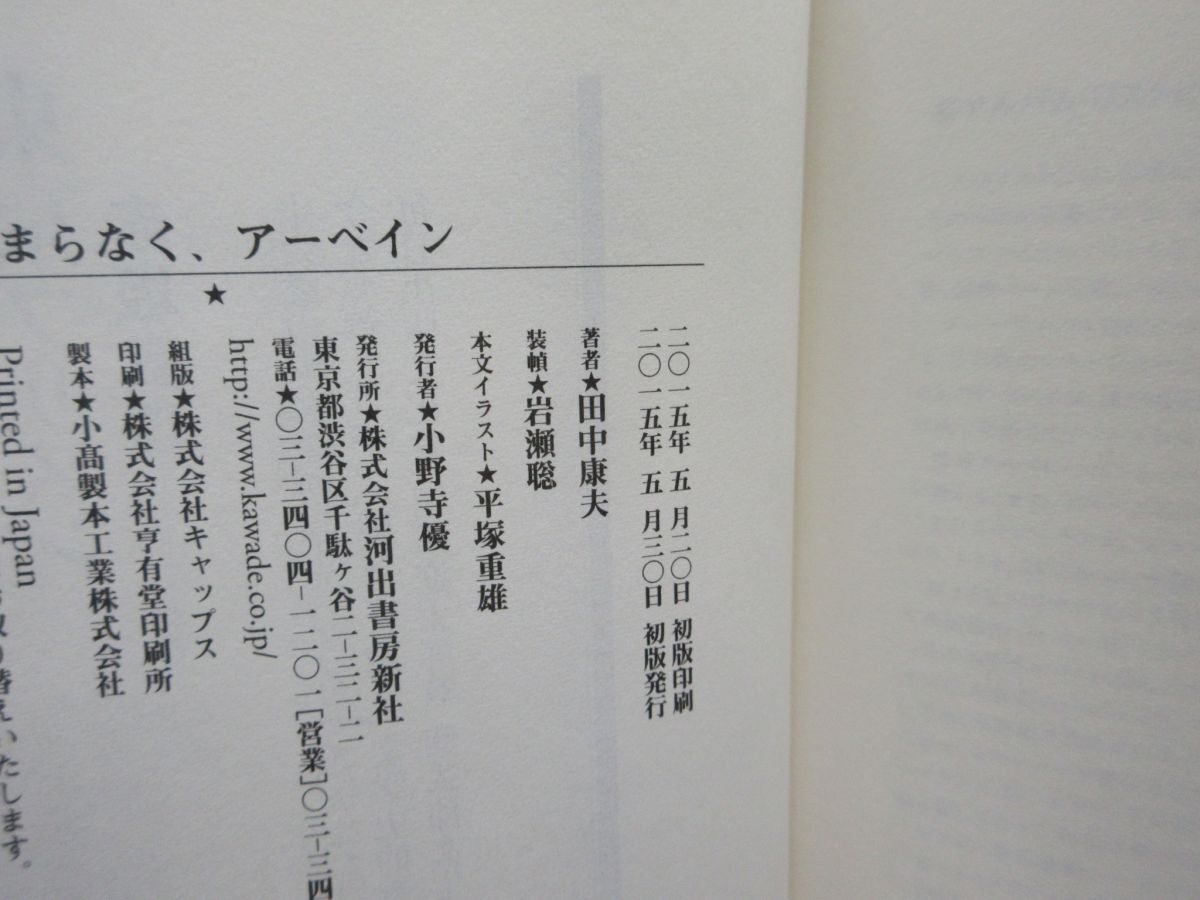 まらなく、アーベイン
★
二〇一五年 五 月二〇日 初版印刷
二〇一五年 五 月三〇日 初版発行
著者★田中康夫
装幀★岩瀬聡
本文イラスト★平塚重雄
発行者★小野寺優
発行所★株式会社河出書房新社
東京都渋谷区千駄ヶ谷二-三二-二
電話★〇三-三四〇四-一二〇一[営業]〇三-三四
http://www.kawade.co.jp/
組版★株式会社キャップス
印刷★株式会社亨有堂印刷所
製本★小髙製本工業株式会社
Printed in Japan
り替えいたします。